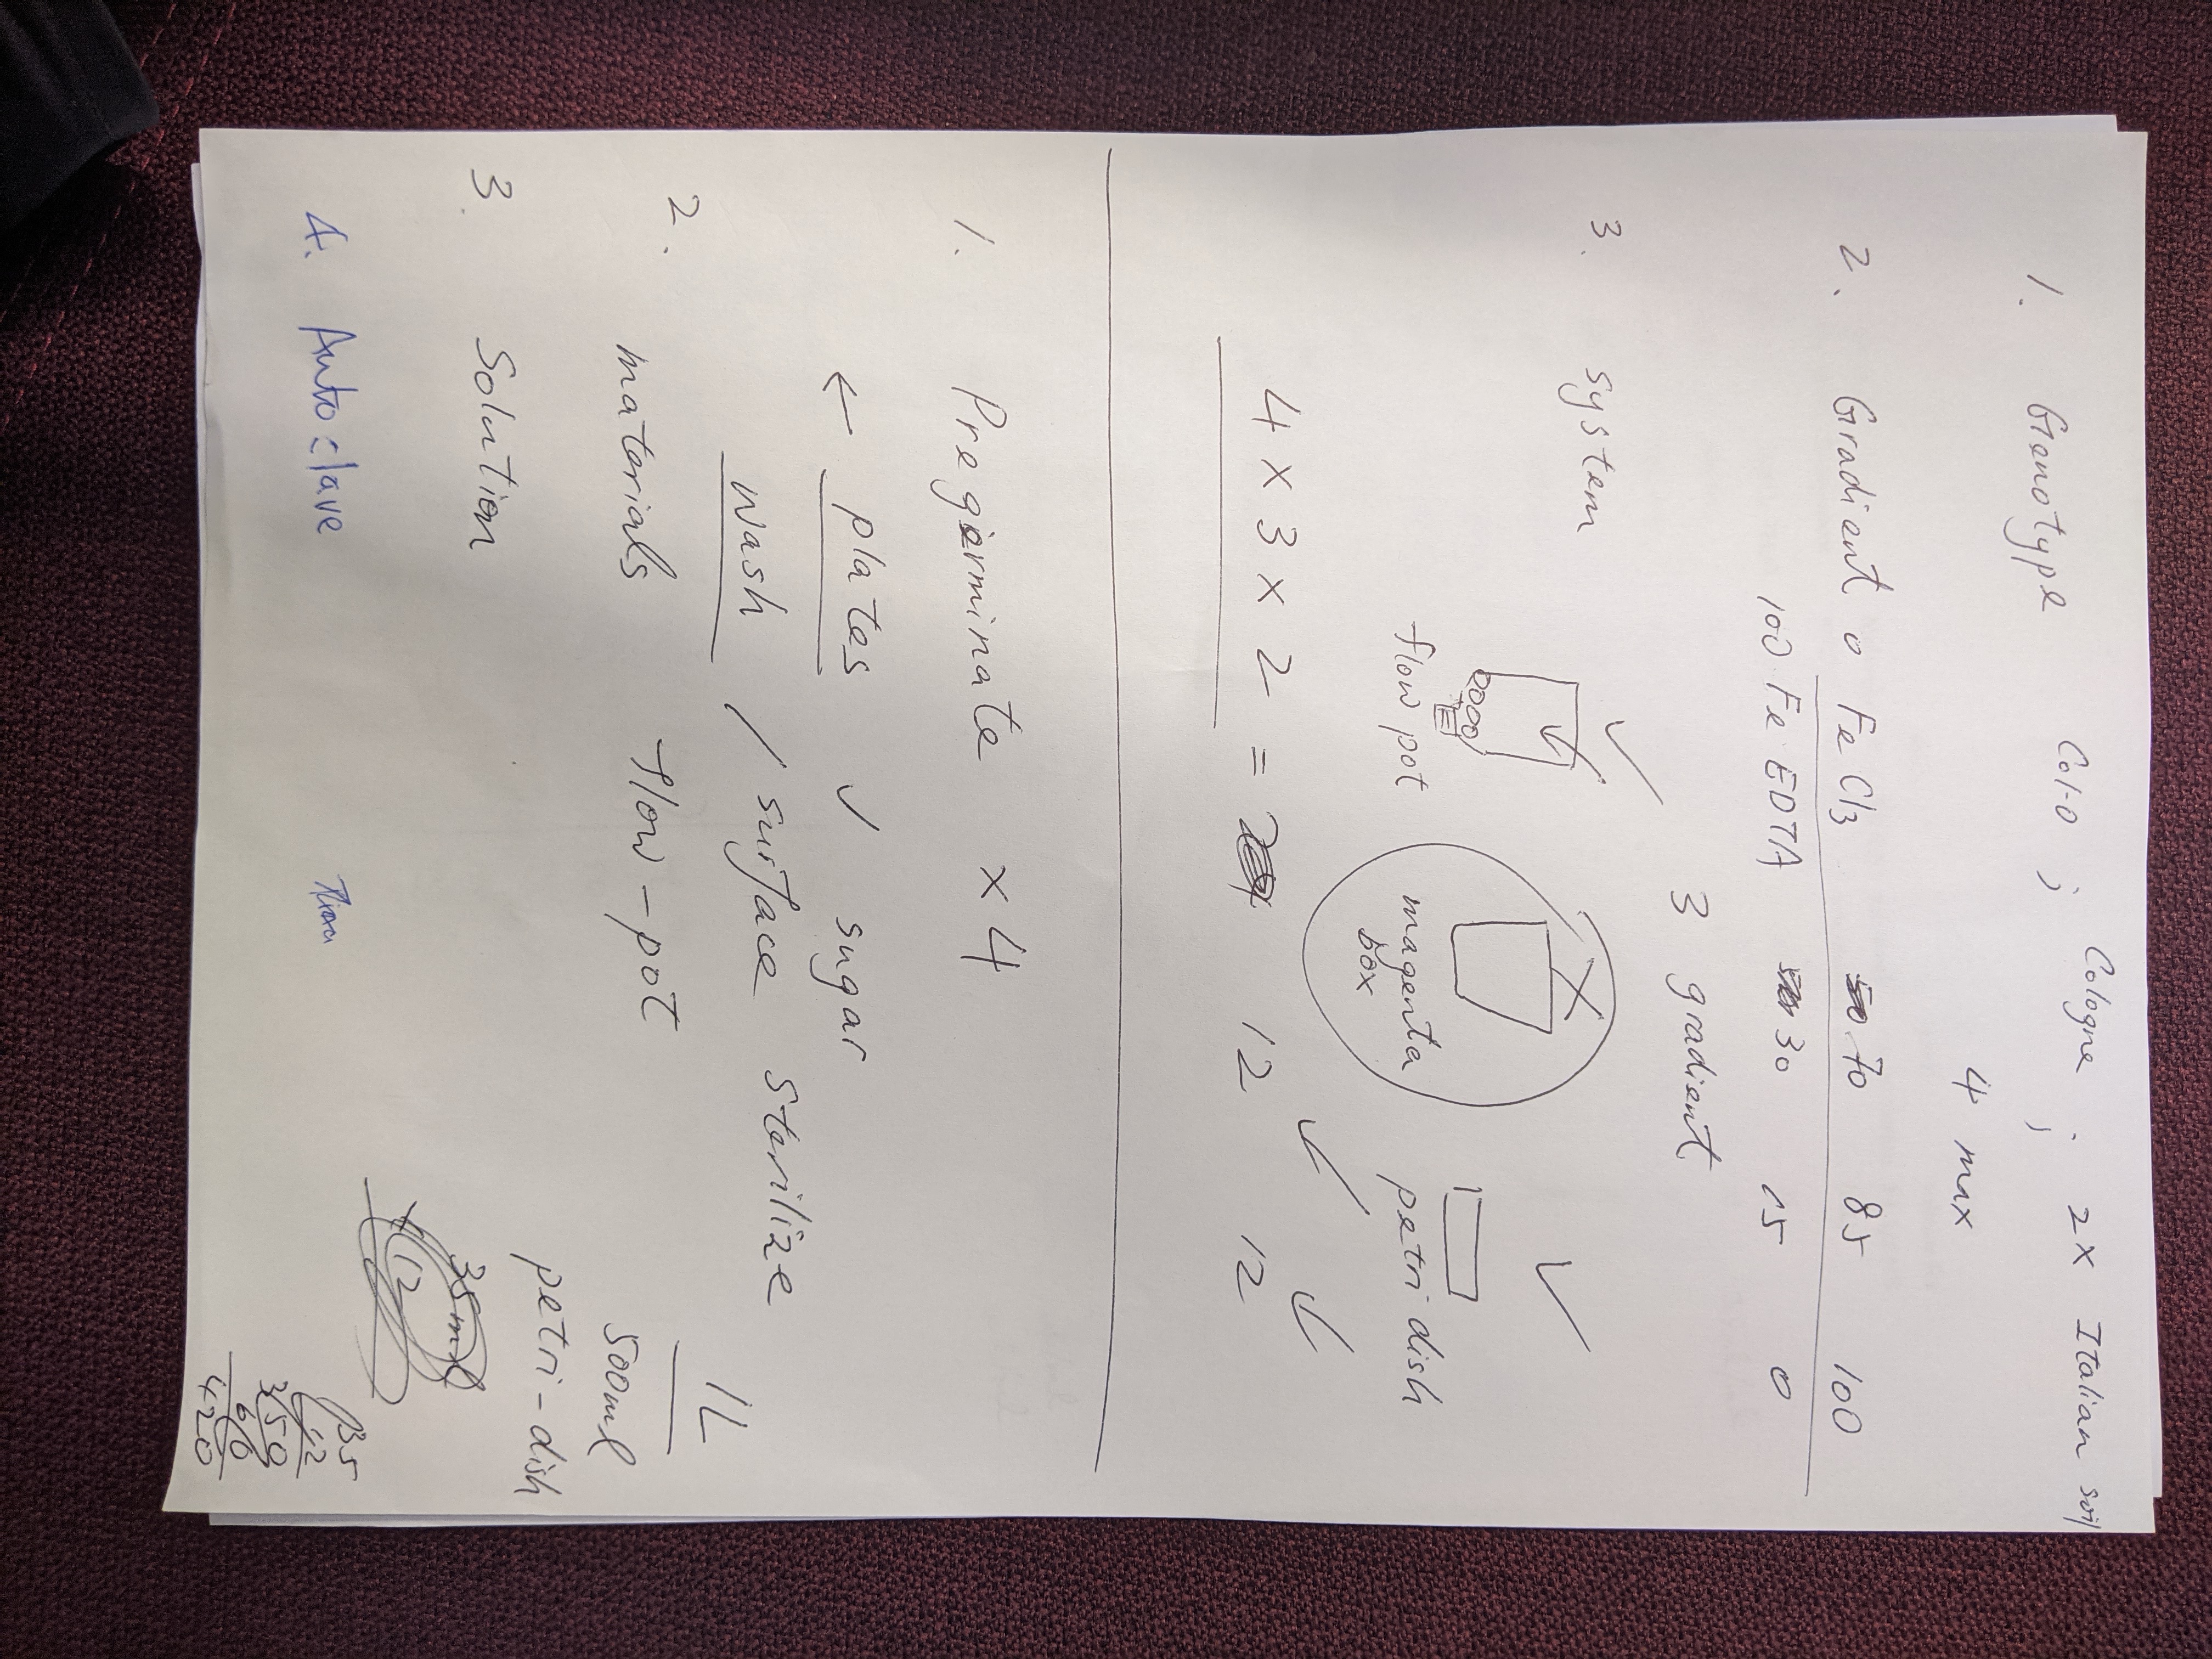 1. Genotype Col-0 ; Cologne ; 2x Italian soil
4 max
2. Gradient 0 FeCl3 70 85 100
100 Fe·EDTA 30 15 0
3 gradient
3. system
flow pot magenta box petri dish
4 x 3 x 2 = 12 12
1. Pregerminate x 4
← plates ✓ sugar
wash / surface sterilize
2. materials flow-pot 1L
500ml
petri-dish
3. Solution
35ml
12
4. Autoclave
35
12
350
420